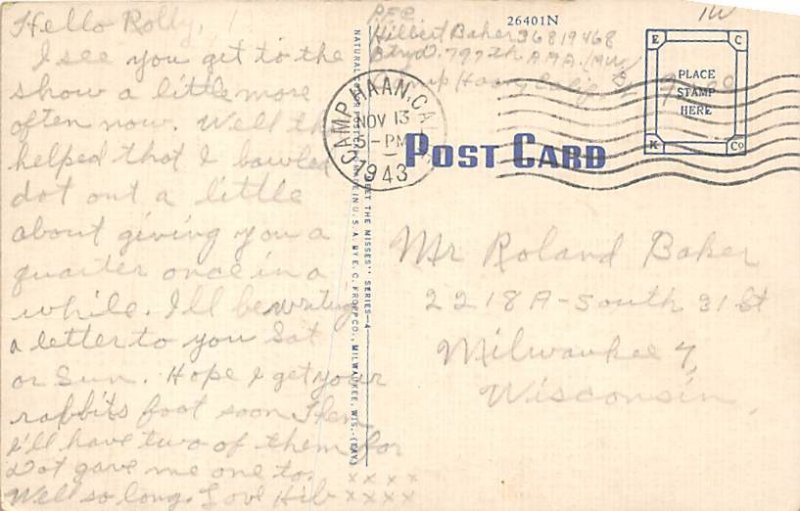 Hello Rolly,
I see you get to the
show a little more
often now. Well th
helped that I bawled
dot out a little
about giving you a
quarter once in a
while. I'll be writing
a letter to you Sat
or Sun. Hope I get your
rabbits foot soon. Then
I'll have two of them for
Dot gave me one to.
Well so long. Love Hib
x x x x
x x x x
NATURAL
"MEET THE MISSES" SERIES—4
IN U.S.A. BY E. C. KROPP CO., MILWAUKEE, WIS.
PFC
Hilbert Baker 36819468
Btry D. 797th A.A.A.
Camp Haan, Calif
Free
26401N
1W
CAMP HAAN, CA
NOV 13
5-PM
1943
E C
PLACE
STAMP
HERE
K Co
POST CARD
Mr Roland Baker
2218A-South 31 St
Milwaukee 7,
Wisconsin,